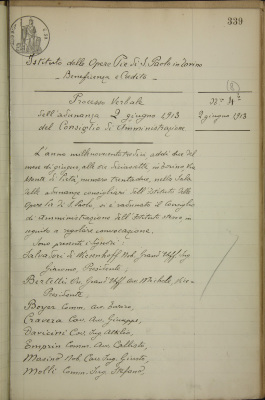 339
Istituto delle Opere Pie di S. Paolo in Torino
Beneficenza e Credito
Processo Verbale
dell'adunanza 2 giugno 1913
del Consiglio di Amministrazione
N° 4
2 giugno 1913
L'anno millenovecentotredici addì due del
mese di giugno, alle ore diciassette, in Torino, Via
Monte di Pietà, numero trentadue, nella Sala
delle adunanze consigliari dell'Istituto delle
Opere Pie di S. Paolo, si è radunato il Consiglio
di Amministrazione dell'Istituto stesso in
seguito a regolare convocazione.
Sono presenti i Signori:
Salvadori di Wiesenhoff Nob. Grand'Uff. Ing.
Giacomo, Presidente;
Bertetti Grand'Uff. Avv. Michele, Vice-
Presidente;
Boyer Comm. Avv.
Cravera Cav. Avv. Giuseppe,
Davicini Cav. Ing. Attilio,
Emprin Comm. Avv. Callisto,
Masino Nob. Cav. Ing. Giusto,
Molli Comm. Ing. Stefano,